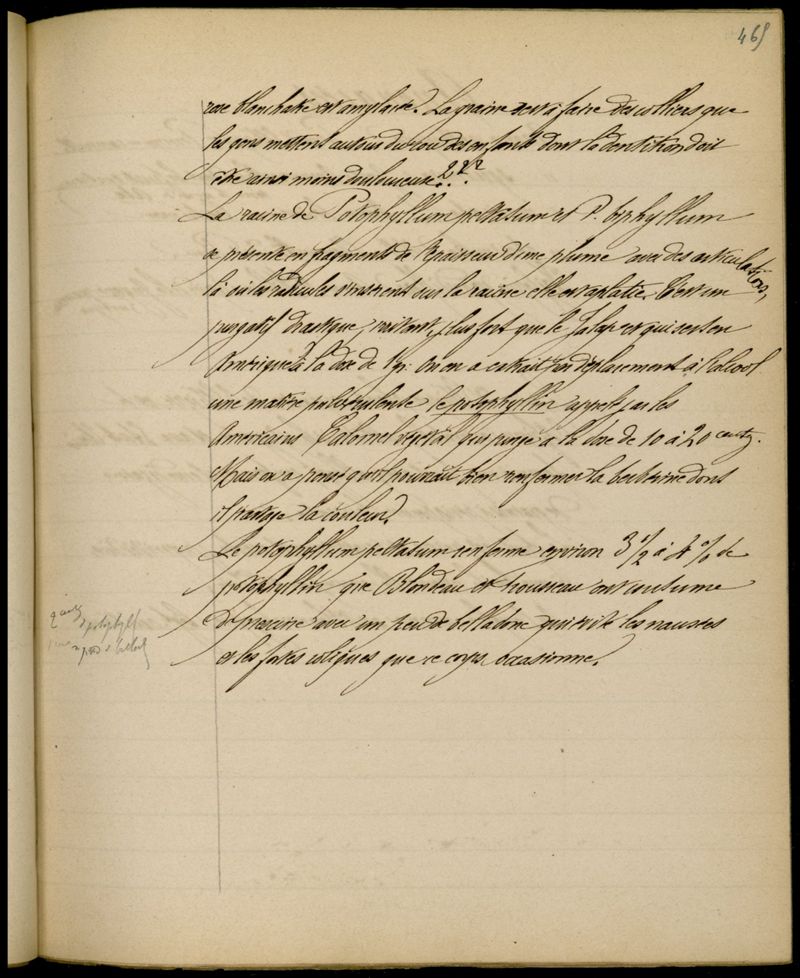 465
rose blanchatre est amylacée. La graine sert à faire des colliers que
les gens mettent autour du cou des enfants dont la dentition doit
être ainsi moins douloureuse ???
La racine de Potophyllum peltatum et P. diphyllum
se présente en fragments de l'épaisseur d'une plume avec des articulations,
là où les radicules s'insèrent sur la racine elle est aplatie. C'est un
purgatif drastique, irritant, plus fort que le Jalap et qui sert en
Amérique à la dose de 1 gr. On en a extrait par déplacement à l'alcool
une matière pulvérulente le potophyllin appelé par les
Américains Calomel végétal qui purge à la dose de 10 à 20 centg.
Mais on a pensé qu'il pourrait bien renfermer la berbérine dont
il partage la couleur.
Le potophyllum peltatum renferme environ 3 1/2 à 4 % de
potophyllin que Blondeau et Trousseau ont coutume
de prescrire avec un peu de belladone qui évite les nausées
et les fortes coliques que ce corps occasionne.
2 centg
d potophyll